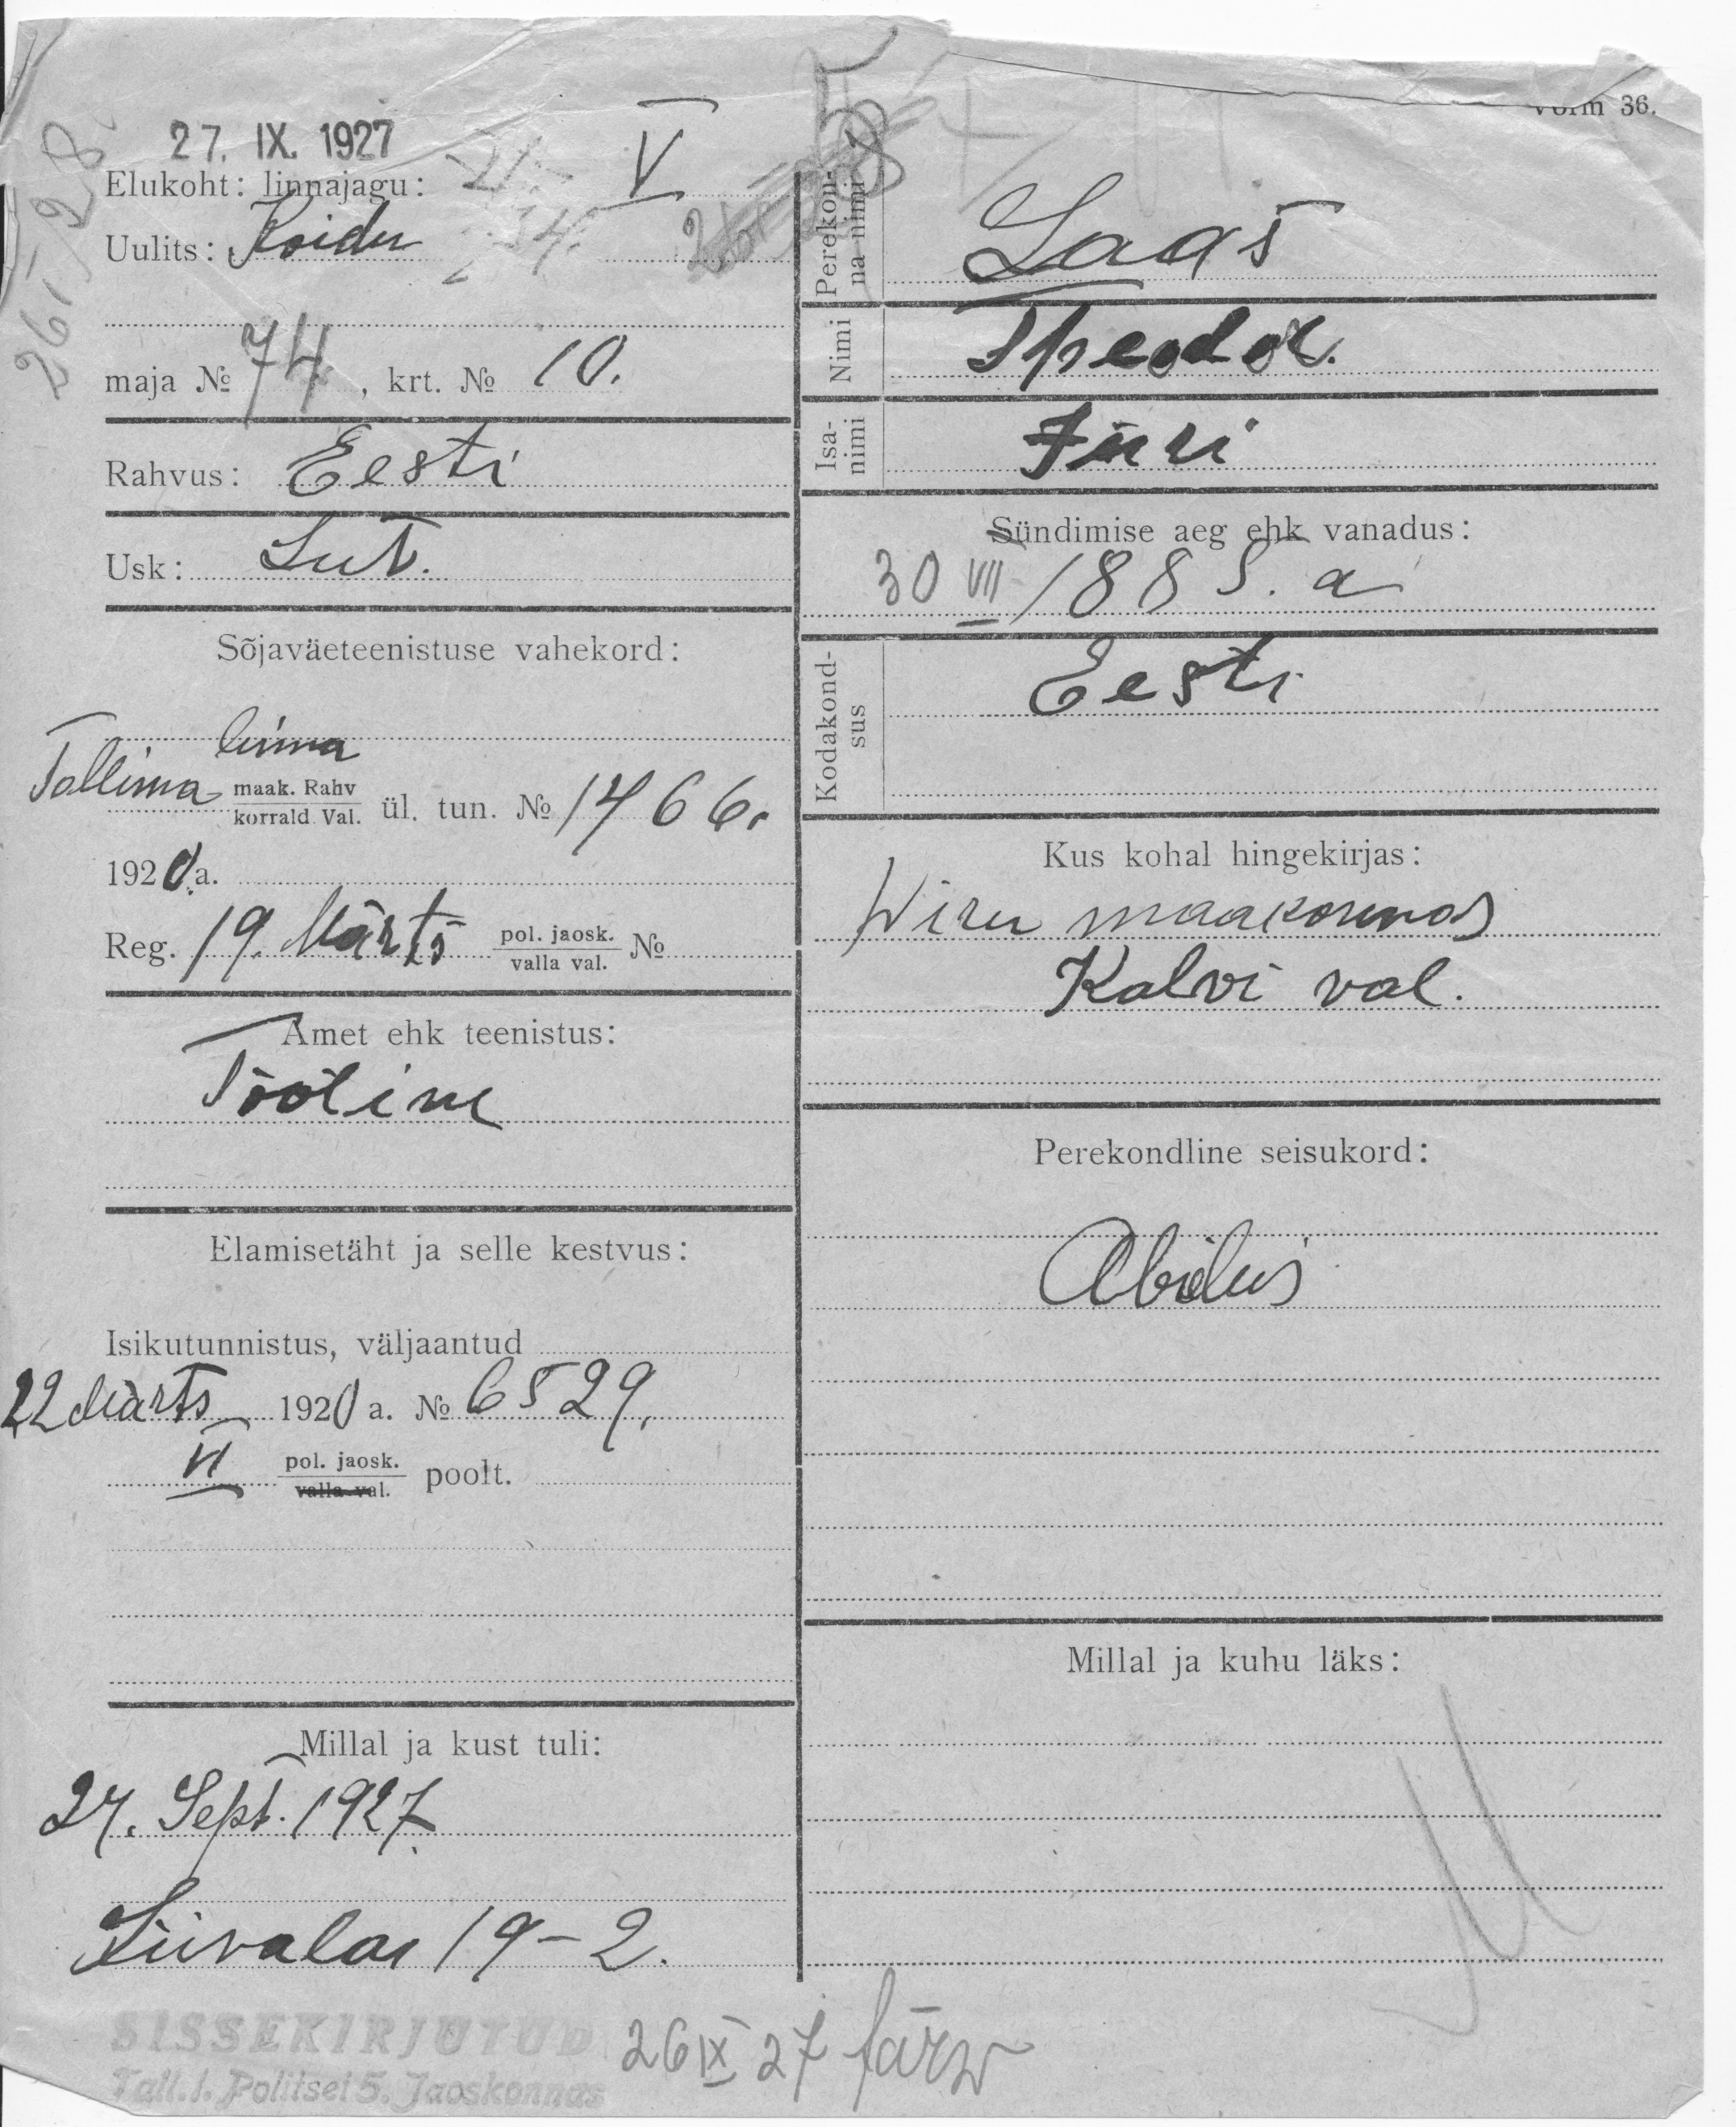 Vorm 36.
27. IX. 1927
Elukoht: linnajagu: V
Uulits: Koidu
maja № 74, krt. № 10.
261/28
Rahvus: Eesti
Usk: Lut.
Sõjaväeteenistuse vahekord:
linna
Tallinna maak. Rahv korrald. Val. ül. tun. № 1466.
1920.a.
Reg. 19. Märts pol. jaosk. valla val. №
Amet ehk teenistus:
Tööline
Elamisetäht ja selle kestvus:
Isikutunnistus, väljaantud
22 Märts 1920 a. № 6529.
VI pol. jaosk. valla val. poolt.
Millal ja kust tuli:
27. Sept. 1927.
Liivalai 19-2.
SISSEKIRJUTUD
Tall. l. Politsei 5. Jaoskonnas
26 IX 27
Perekonna nimi Laas
Nimi Theodor.
Isanimi Jüri
Sündimise aeg ehk vanadus:
30 VII 1885. a
Kodakondsus Eesti
Kus kohal hingekirjas:
Wiru maakonnas
Kalvi val.
Perekondline seisukord:
Abielus
Millal ja kuhu läks: